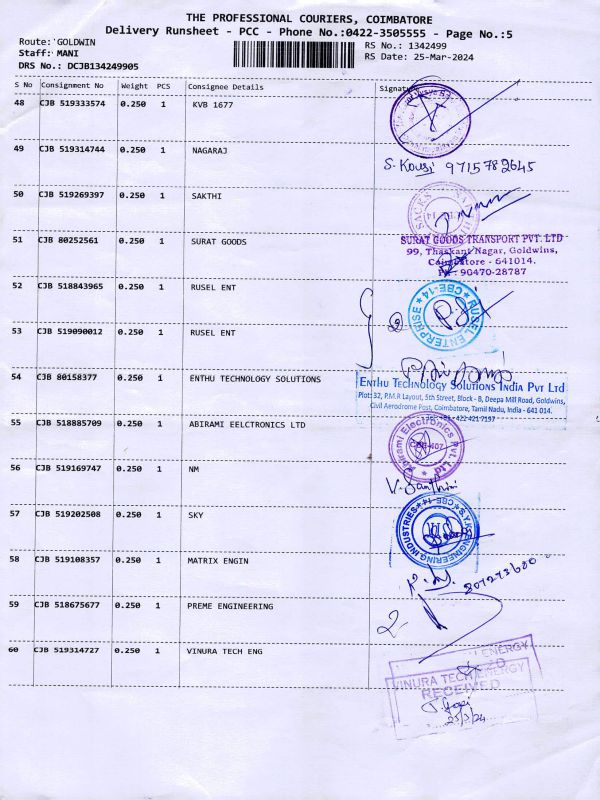 THE PROFESSIONAL COURIERS, COIMBATORE
Delivery Runsheet - PCC - Phone No.:0422-3505555 - Page No.:5
Route: GOLDWIN
RS No.: 1342499
Staff: MANI
RS Date: 25-Mar-2024
DRS No.: DCJB134249905
S No Consignment No Weight PCS Consignee Details Signature
48 CJB 519333574 0.250 1 KVB 1677
49 CJB 519314744 0.250 1 NAGARAJ
S. Kousi 9715782645
50 CJB 519269397 0.250 1 SAKTHI
51 CJB 80252561 0.250 1 SURAT GOODS
SURAT GOODS TRANSPORT PVT. LTD
99, Thaskant Nagar, Goldwins,
Coimbatore - 641014.
90470-28787
52 CJB 518843965 0.250 1 RUSEL ENT
RUSEL ENTERPRISE ★ CBE-14 ★
53 CJB 519090012 0.250 1 RUSEL ENT
54 CJB 80158377 0.250 1 ENTHU TECHNOLOGY SOLUTIONS
ENTHU TECHNOLOGY SOLUTIONS INDIA PVT LTD
Plot: 32, P.M.R Layout, 5th Street, Block - B, Deepa Mill Road, Goldwins,
Civil Aerodrome Post, Coimbatore, Tamil Nadu, India - 641 014.
422 421 7197
55 CJB 518885709 0.250 1 ABIRAMI EELCTRONICS LTD
Abirami Electronics Pvt. Ltd
56 CJB 519169747 0.250 1 NM
V. Santhini
57 CJB 519202508 0.250 1 SKY
S.Y.K ENGINEERING INDUSTRIES ★ CBE-14 ★
58 CJB 519108357 0.250 1 MATRIX ENGIN
59 CJB 518675677 0.250 1 PREME ENGINEERING
2
60 CJB 519314727 0.250 1 VINURA TECH ENG
ENERGY
VINURA TECH ENERGY
RECEIVED
25/3/24